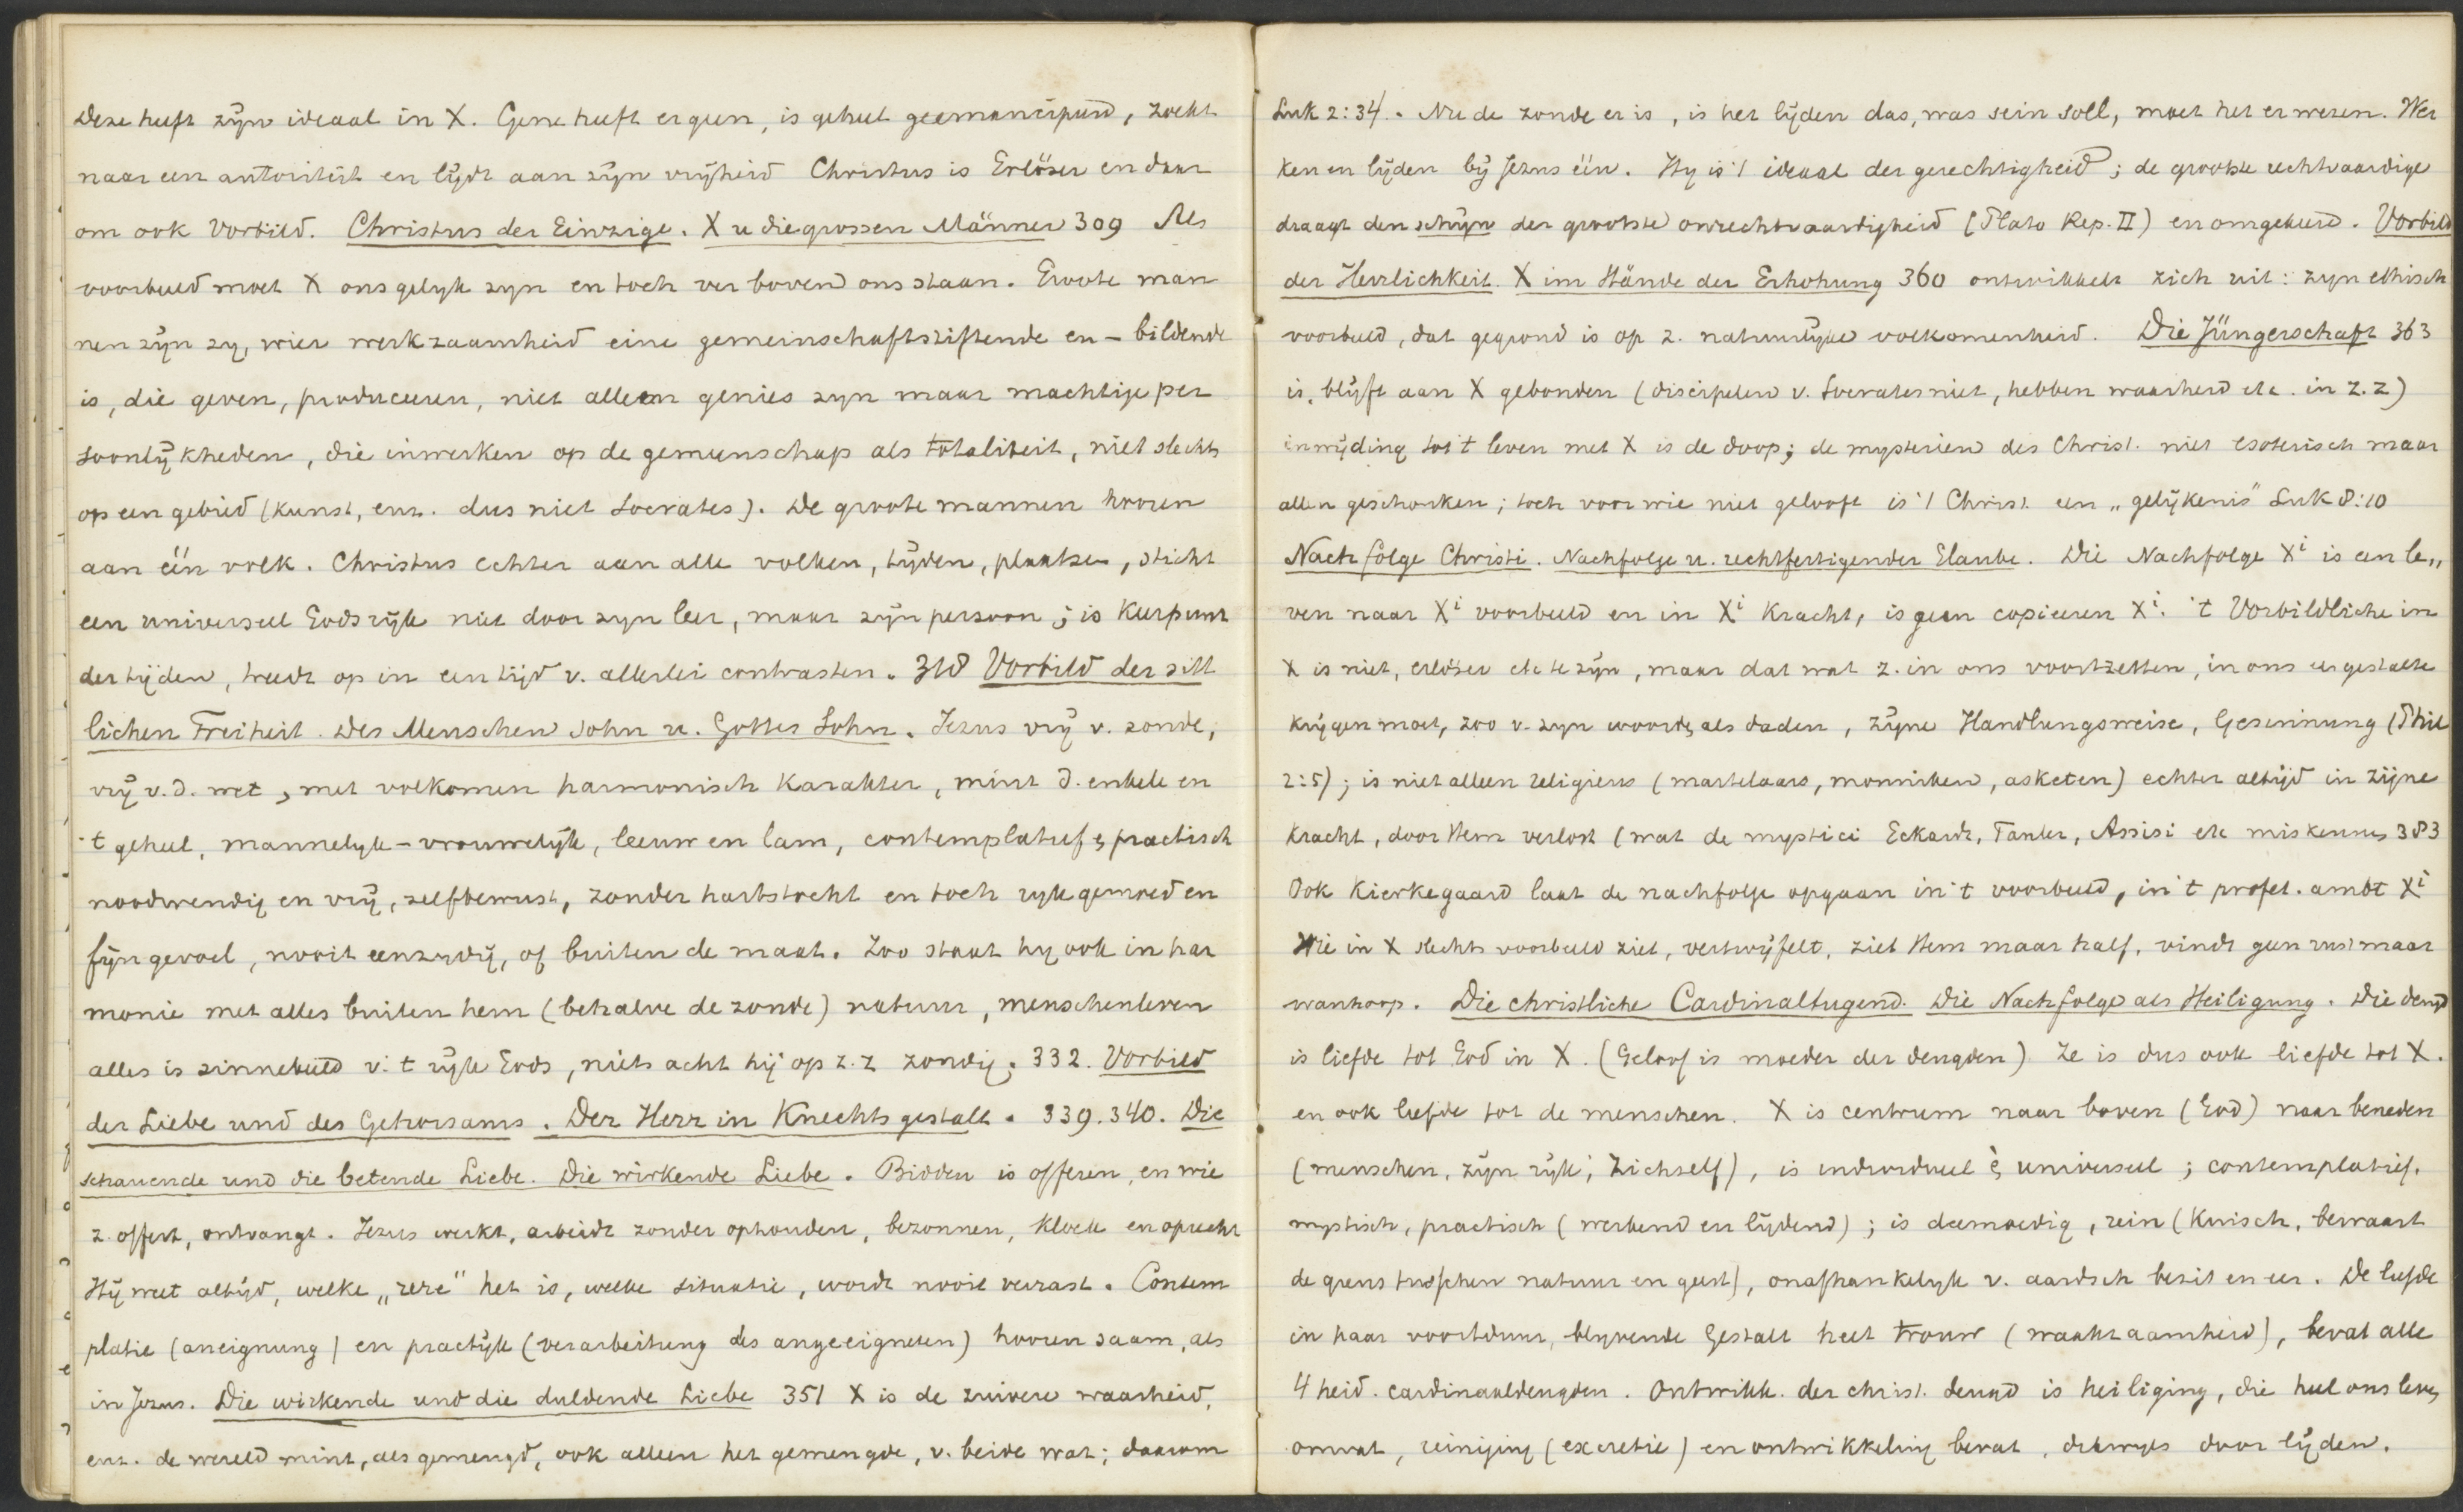 Deze heeft zijn ideaal in X. Gene heeft er geen, is geheel geemancipeerd, zoekt
naar een autoriteit en lijdt aan zijn vrijheid Christus is Erlöser en daar
om ook Vorbild. Christus der Einzige. X u die grossen Männer 309 Als
voorbeeld moet X ons gelijk zyn en toch ver boven ons staan. Groote man
nen zijn zy, wier werkzaamheid eine gemeinschaftstiftende en - bildende
is, die geven, produceeren, niet alleen genies zyn maar machtige per
soonlijkheden, die inwerken op de gemeenschap als totaliteit, niet slechts
op een gebied (kunst, enz. dus niet Socrates). De groote mannen hooren
aan één volk. Christus echter aan alle volken, tijden, plaatsen, sticht
een universeel Godsrijk niet door zyn leer, maar zijn persoon; is Keerpunt
der tijden, treedt op in een tijd v. allerlei contrasten. 318 Vorbild der sitt
lichen Freiheit. Des Menschen Sohn u. Gottes Sohn. Jezus vrij v. zonde,
vrij v.d. wet, met volkomen harmonisch karakter, mint d. enkele en
't geheel, mannelyk - vrouwelijk, leeuw en lam, contemplatief & practisch
noodwendig en vrij, zelfbewust, zonder hartstocht en toch ryk gemoed en
fijn gevoel, nooit eenzydig, of buiten de maat. Zoo staat hy ook in har
monie met alles buiten hem (behalve de zonde) natuur, menschenleven
alles is zinnebeeld v. 't rijk Gods, niets acht hij op z.z zondig. 332. Vorbild
der Liebe und des Gehorsams. Der Herr in Knechtsgestalt. 339.340. Die
schauende und die betende Liebe. Die wirkende Liebe. Bidden is offeren, en wie
z. offert, ontvangt. Jezus werkt, arbeidt zonder ophouden, bezonnen, kloek en oprecht
Hij weet altijd, welke "ure" het is, welke situatie, wordt nooit verrast. Contem
platie (aneignung) en practijk (verarbeitung des angeeigneten) hooren saam, als
in Jezus. Die wirkende und die duldende Liebe 351 X is de zuivere waarheid,
enz. de wereld mint, als gemengd, ook alleen het gemengde, v. beide wat; daarom
Luk 2:34. Nu de zonde er is, is het lijden das, was sein soll, moet het er wezen. Wer
ken en lijden bij Jezus één. Hy is 't ideaal der gerechtigheid; de grootste rechtvaardige
draagt den schijn der grootste onrechtvaardigheid (Plato Rep. II) en omgekeerd. Vorbild
der Herrlichkeit. X im Stande der Erhohung 360 ontwikkelt zich uit: zyn ethisch
voorbeeld, dat gegrond is op z. natuurlijke volkomenheid. Die Jüngerschaft 363
is, blijft aan X gebonden (discipelen v. Socrates niet, hebben waarheid etc. in z.z)
inwijding tot 't leven met X is de doop; de mysterien des Christ. niet esoterisch maar
allen geschonken; toch voor wie niet gelooft is 't Christ. een "gelijkenis" Luk 8:10
Nachfolge Christi. Nachfolge u. rechtfertigender Glaube. Die Nachfolge Xi is een le„
ven naar Xi voorbeeld en in Xi kracht, is geen copieeren Xi. 't Vorbildliche in
X is niet, erlöser etc te zijn, maar dat wat z. in ons voortzetten, in ons eer gestalte
krijgen moet, zoo v. zyn woorden als daden, zijne Handlungsweise, Gesinnung (Phil
2:5); is niet alleen religieus (martelaars, monniken, asketen) echter altijd in zijne
kracht, door Hem verlost (wat de mystici Eckardt, Tauler, Assisi etc miskennen 383
Ook Kierkegaard laat de nachfolge opgaan in 't voorbeeld, in 't profet. ambt Xi
Wie in X slechts voorbeeld ziet, vertwijfelt, ziet Hem maar half, vindt geen rust maar
wanhoop. Die christliche Cardinaltugend. Die Nachfolge als Heiligung. Die deugd
is liefde tot God in X. (Geloof is moeder der deugden). Ze is dus ook liefde tot X.
en ook liefde tot de menschen. X is centrum naar boven (God) naar beneden
(menschen, zijn rijk, Zichzelf), is individueel & universeel; contemplatief.
mystisch, practisch (werkend en lijdend); is deemoedig, rein (kuisch, bewaart
de grens tusschen natuur en geest), onafhankelyk v. aardsch bezit en eer. De liefde
in haar voortduur, blyvende Gestalt heet trouw (waakzaamheid), bevat alle
4 heid. cardinaaldeugden. Ontwikk. der christ. deugd is heiliging, die heel ons leven
omvat, reiniging (excretie) en ontwikkeling bevat, door lijden.